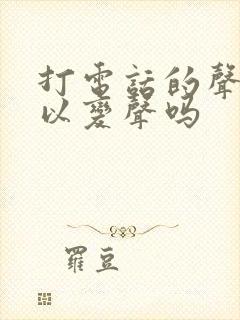 打電話的聲
以變聲吗
羅豆